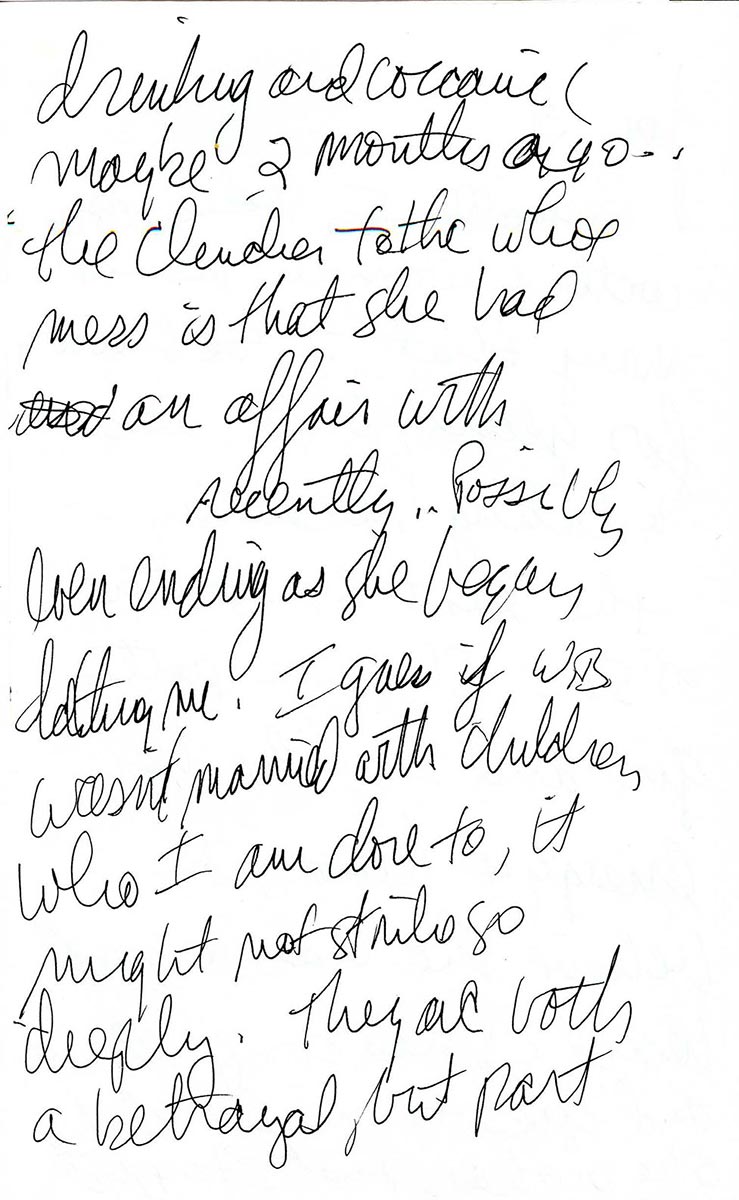 drinking and cocaine (
maybe 2 months ago..
the clencher to the whole
mess is that she had
an affair with
recently.. Possibly
even ending as she began
dating me. I guess if WB
wasn't married with children
who I am close to, it
might not strike so
deeply. They are both
a betrayal, but part